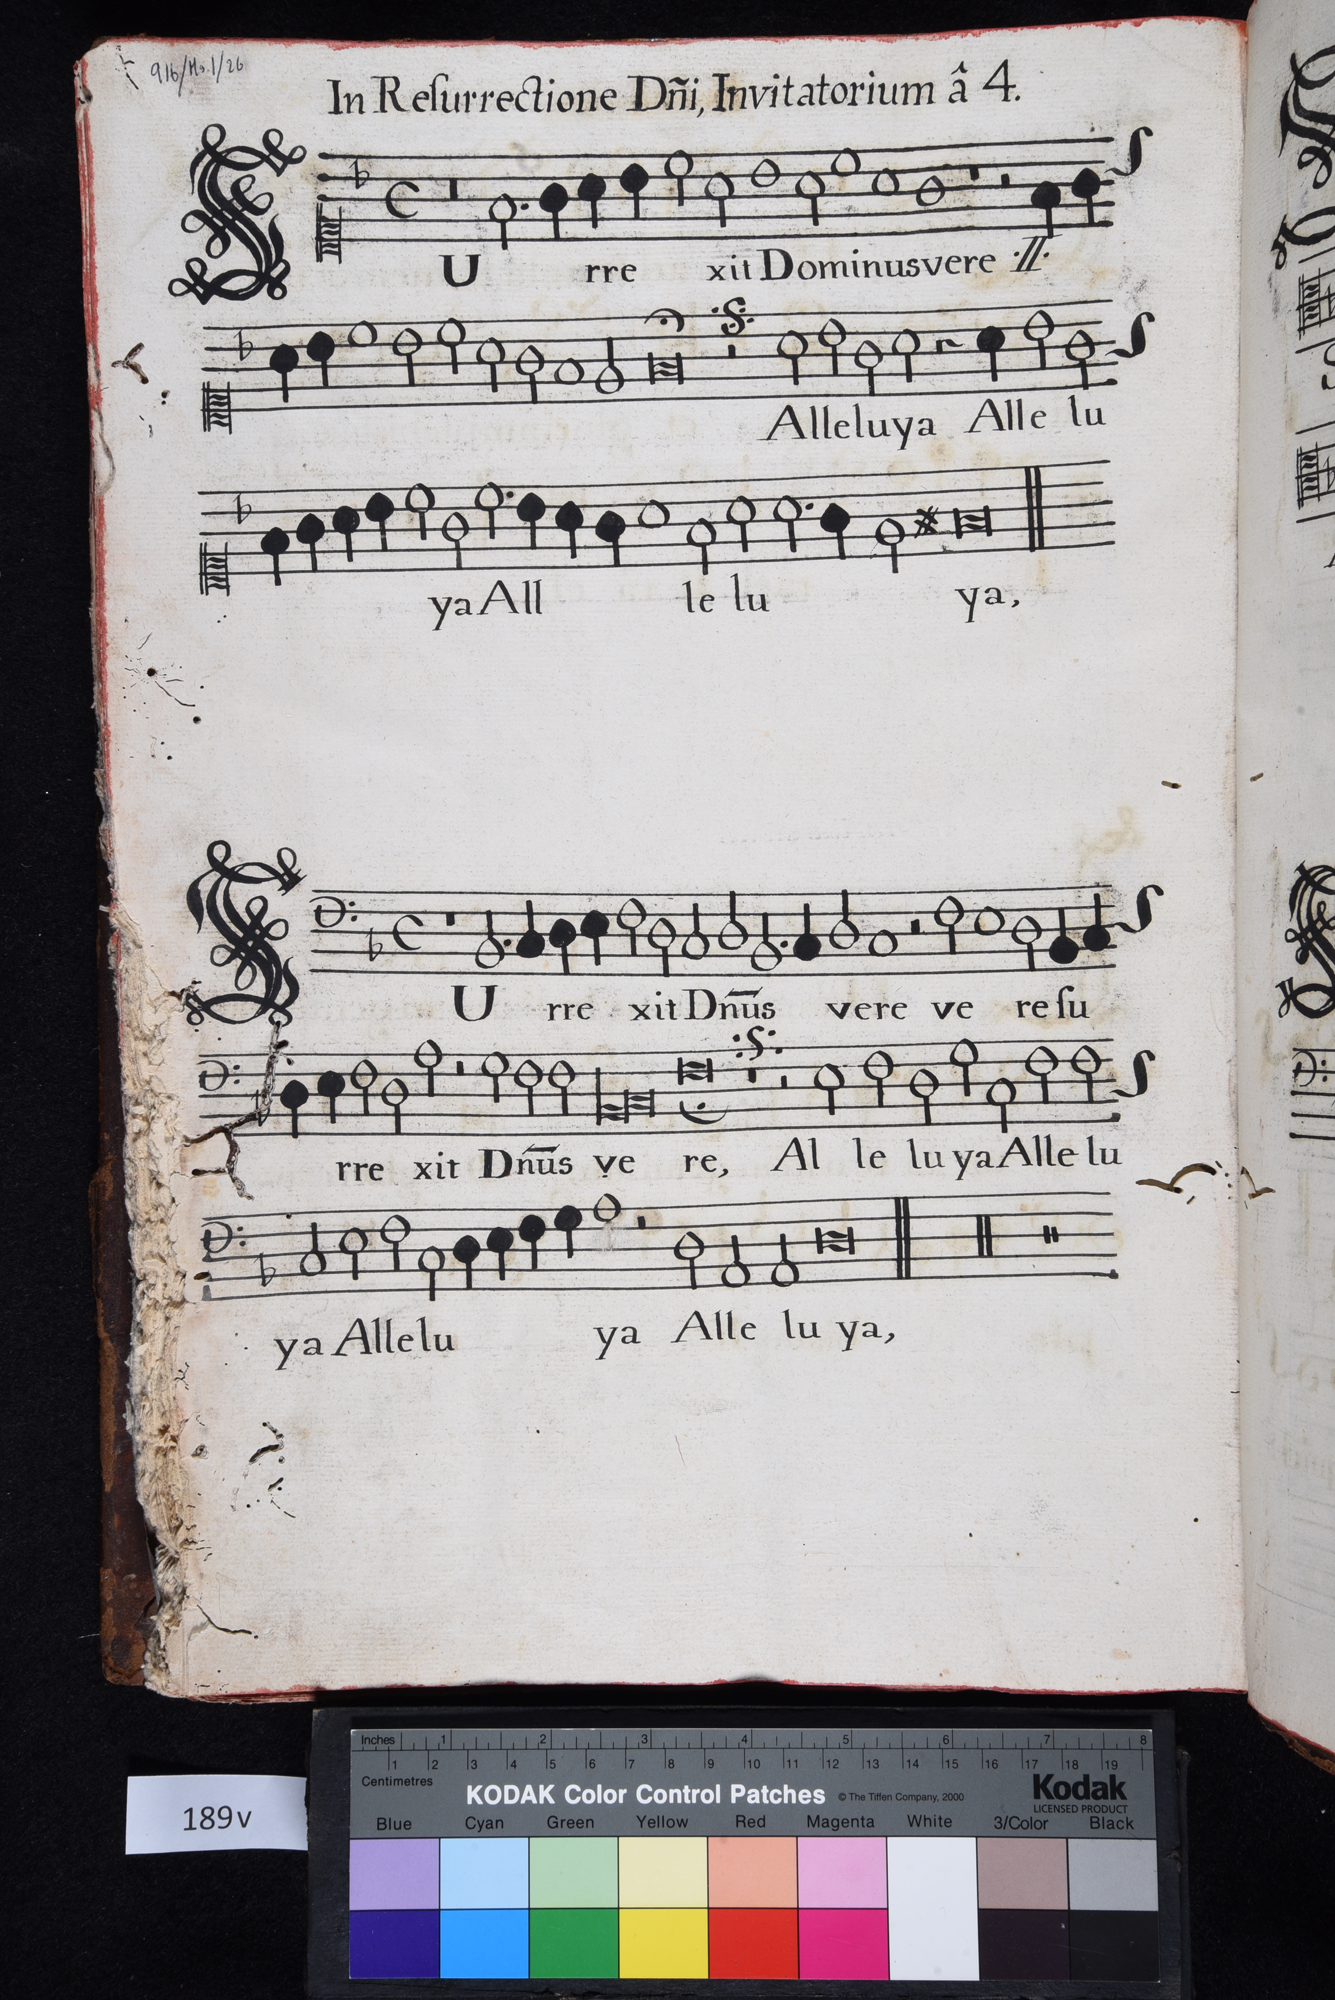 916/Ms.1/26
In Reſurrectione Dñi, Invitatorium â 4.
SU rre xit Dominus vere ://:
Alleluya Alle lu
ya All le lu ya,
SU rre xit Dn̄ūs vere ve re ſu
rre xit Dn̄ūs ve re, Al le lu ya Alle lu
ya Alle lu ya Alle lu ya,
189v
Inches 1 2 3 4 5 6 7 8
Centimetres 1 2 3 4 5 6 7 8 9 10 11 12 13 14 15 16 17 18 19
KODAK Color Control Patches © The Tiffen Company, 2000 Kodak
LICENSED PRODUCT
Blue Cyan Green Yellow Red Magenta White 3/Color Black